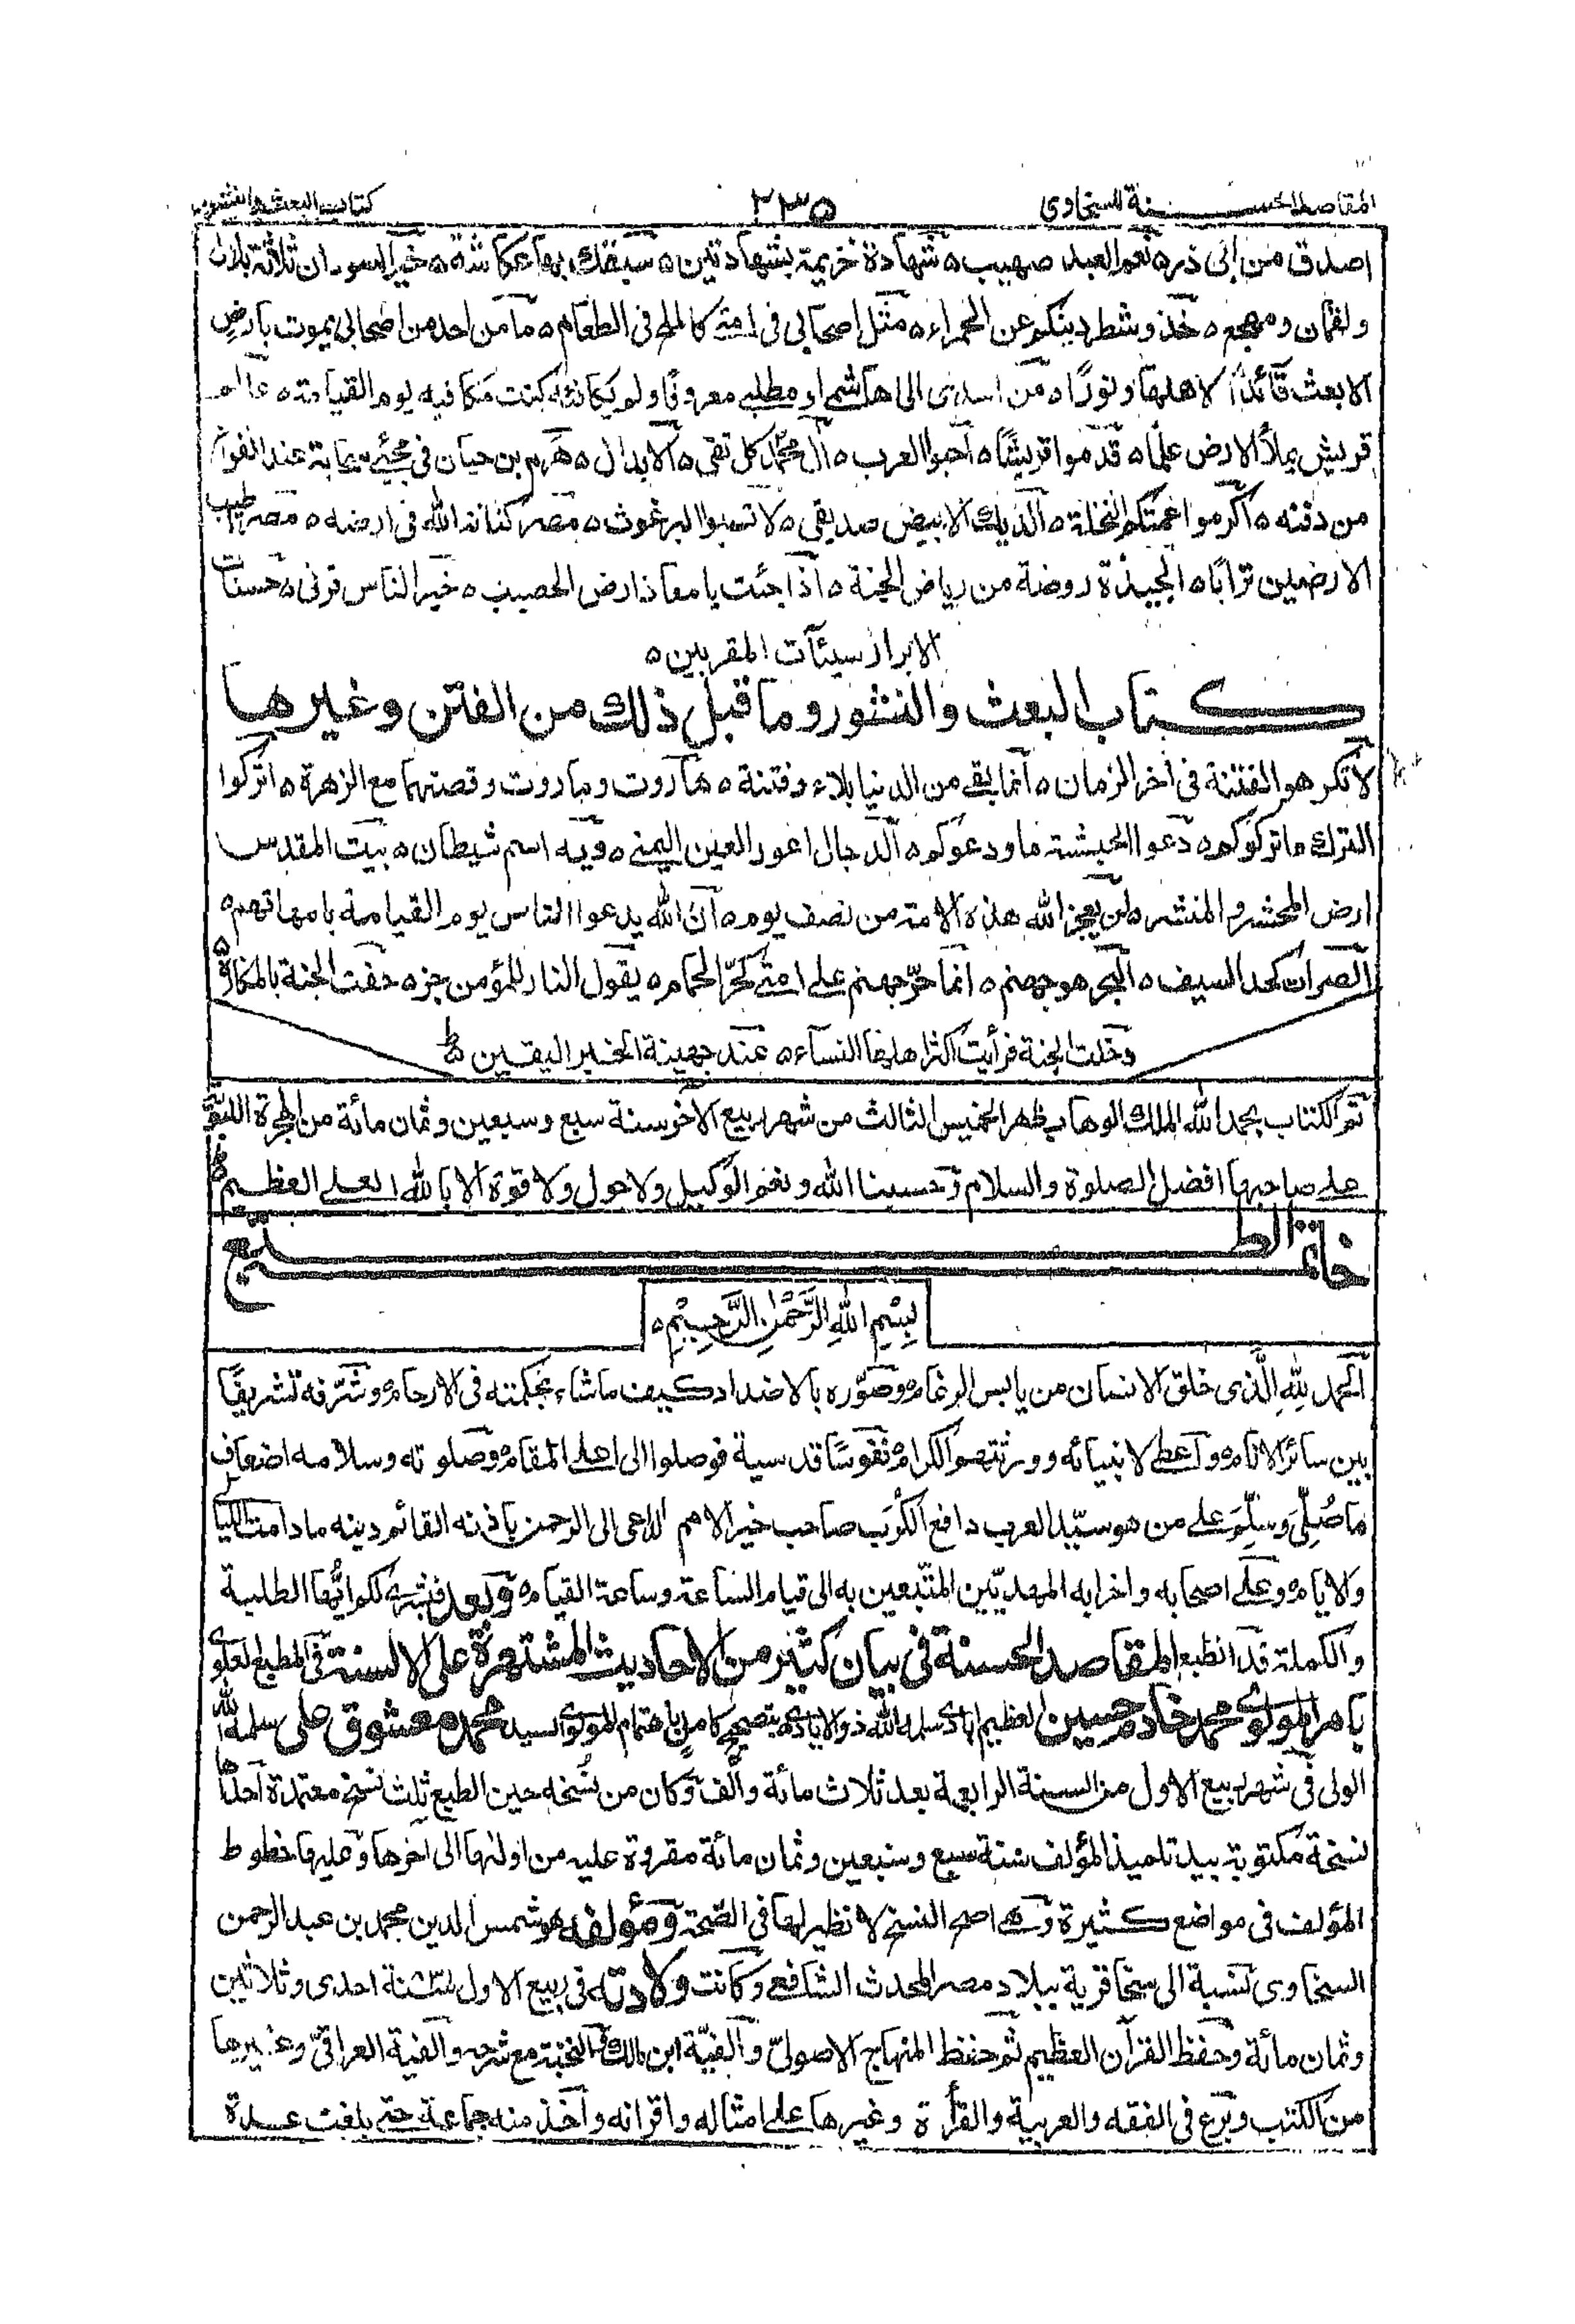 المقاصد الحسنة للسخاوي
٢٣٥
كتاب البعث والنشور
اصدق من ابى ذر ه نعم العبد صهيب ه شهادة خزيمة بشهادتين ه سبقك بها عكاشة ه خير السودان ثلاثة بلال
ولقمان ومهجع ه خذوا شطر دينكم عن الحمراء ه مثل اصحابى فى امتى كالملح فى الطعام ه ما من احد من اصحابى يموت بارض
الا بعث قائدًا لاهلها ونورًا ه من اسدى الى هاشمى او مطلبى معروفًا ولم يكافئه كنت مكافيه يوم القيامة ه عالم
قريش يملأ الارض علمًا ه قدموا قريشًا ه احبوا العرب ه آل محمد كل تقى ه الابدال ه هرم بن حيان فى مجئ سحابة عند الفراغ
من دفنه ه اكرموا عمتكم النخلة ه الديك الابيض صديقى ه لا تسبوا البرغوث ه مصر كنانة الله فى ارضه ه مصر اطيب
الارضين ترابًا ه الجيزة روضة من رياض الجنة ه اذا جئت يا معاذ ارض الحصيب ه خير الناس قرنى ه حسنات
الابرار سيئات المقربين ه
كتاب البعث والنشور وما قبل ذلك من الفتن وغيرها
لا تكرهوا الفتنة فى آخر الزمان ه انما بقى من الدنيا بلاء وفتنة ه هاروت وماروت وقصتهما مع الزهرة ه اتركوا
الترك ما تركوكم ه دعوا الحبشة ما ودعوكم ه الدجال اعور العين اليمنى ه ويه اسم شيطان ه بيت المقدس
ارض المحشر والمنشر ه لن يعجز الله هذه الامة من نصف يوم ه ان الله يدعوا الناس يوم القيامة بامهاتهم ه
الصراط كحد السيف ه البحر هو جهنم ه انما حرّ جهنم على امتى كحرّ الحمام ه يقول النار للمؤمن جز ه حفت الجنة بالمكاره ه
دخلت الجنة فرأيت اكثر اهلها النساء ه عند جهينة الخبر اليقين
تم الكتاب بحمد الله الملك الوهاب ظهر الخميس الثالث من شهر ربيع الاخر سنة سبع وسبعين وثمان مائة من الهجرة النبوية
على صاحبها افضل الصلوة والسلام وحسبنا الله ونعم الوكيل ولا حول ولا قوة الا بالله العلى العظيم
خاتمة الطبع
بِسْمِ اللهِ الرَّحْمٰنِ الرَّحِيْمِ ه
الحمد لِلّٰهِ الَّذى خلق الانسان من يابس الرغام وصوّره بالاضداد كيف ما شاء بحكمته فى الارحام وشرّفه تشريفًا
بين سائر الانام واعطى لانبيائه وورثتهم الكرام نفوسًا قدسية فوصلوا الى اعلى المقام وصلوته وسلامه اضعاف
ما صُلِّىَ وسُلِّمَ على من هو سيّد العرب دافع الكُرَب صاحب خير الامم الداعى الى الرحمن باذنه القائم دينه مادامت الليالى
والايام وعلى اصحابه واحزابه المهديّين المتّبعين به الى قيام الساعة وساعة القيام وبعد فبشرى لكم ايّها الطلبة
والكملة قد انطبع المقاصد الحسنة فى بيان كثير من الاحاديث المشتهرة على الالسنة فى المطبع العلوى
بامر المولوى محمد خادم حسين العظيم ابادى سلمه الله ذو الايادى بتصحيح كامل باهتمام المولوى السيد محمد معشوق على سلمه الله
الولى فى شهر ربيع الاول من السنة الرابعة بعد ثلاث مائة والف وكان من نسخه حين الطبع ثلث نسخ معتمدة احدها
نسخة مكتوبة بيد تلميذ المؤلف سنة سبع وسبعين وثمان مائة مقروة عليه من اولها الى آخرها وعليها خطوط
المؤلف فى مواضع كثيرة وهى اصح النسخ لا نظير لها فى الصحة ومؤلفه هو شمس الدين محمد بن عبد الرحمن
السخاوى نسبة الى سخا قرية ببلاد مصر المحدث الشافعى وكانت ولادته فى ربيع الاول سنة احدى وثلاثين
وثمان مائة وحفظ القرآن العظيم ثم حفظ المنهاج الاصولىّ والفيّة ابن مالك والنخبة مع شرحه والفية العراقىّ وغيرها
من الكتب وبرع فى الفقه والعربية والقرأة وغيرها على امثاله واقرانه واخذ منه جماعة حتى بلغت عدة